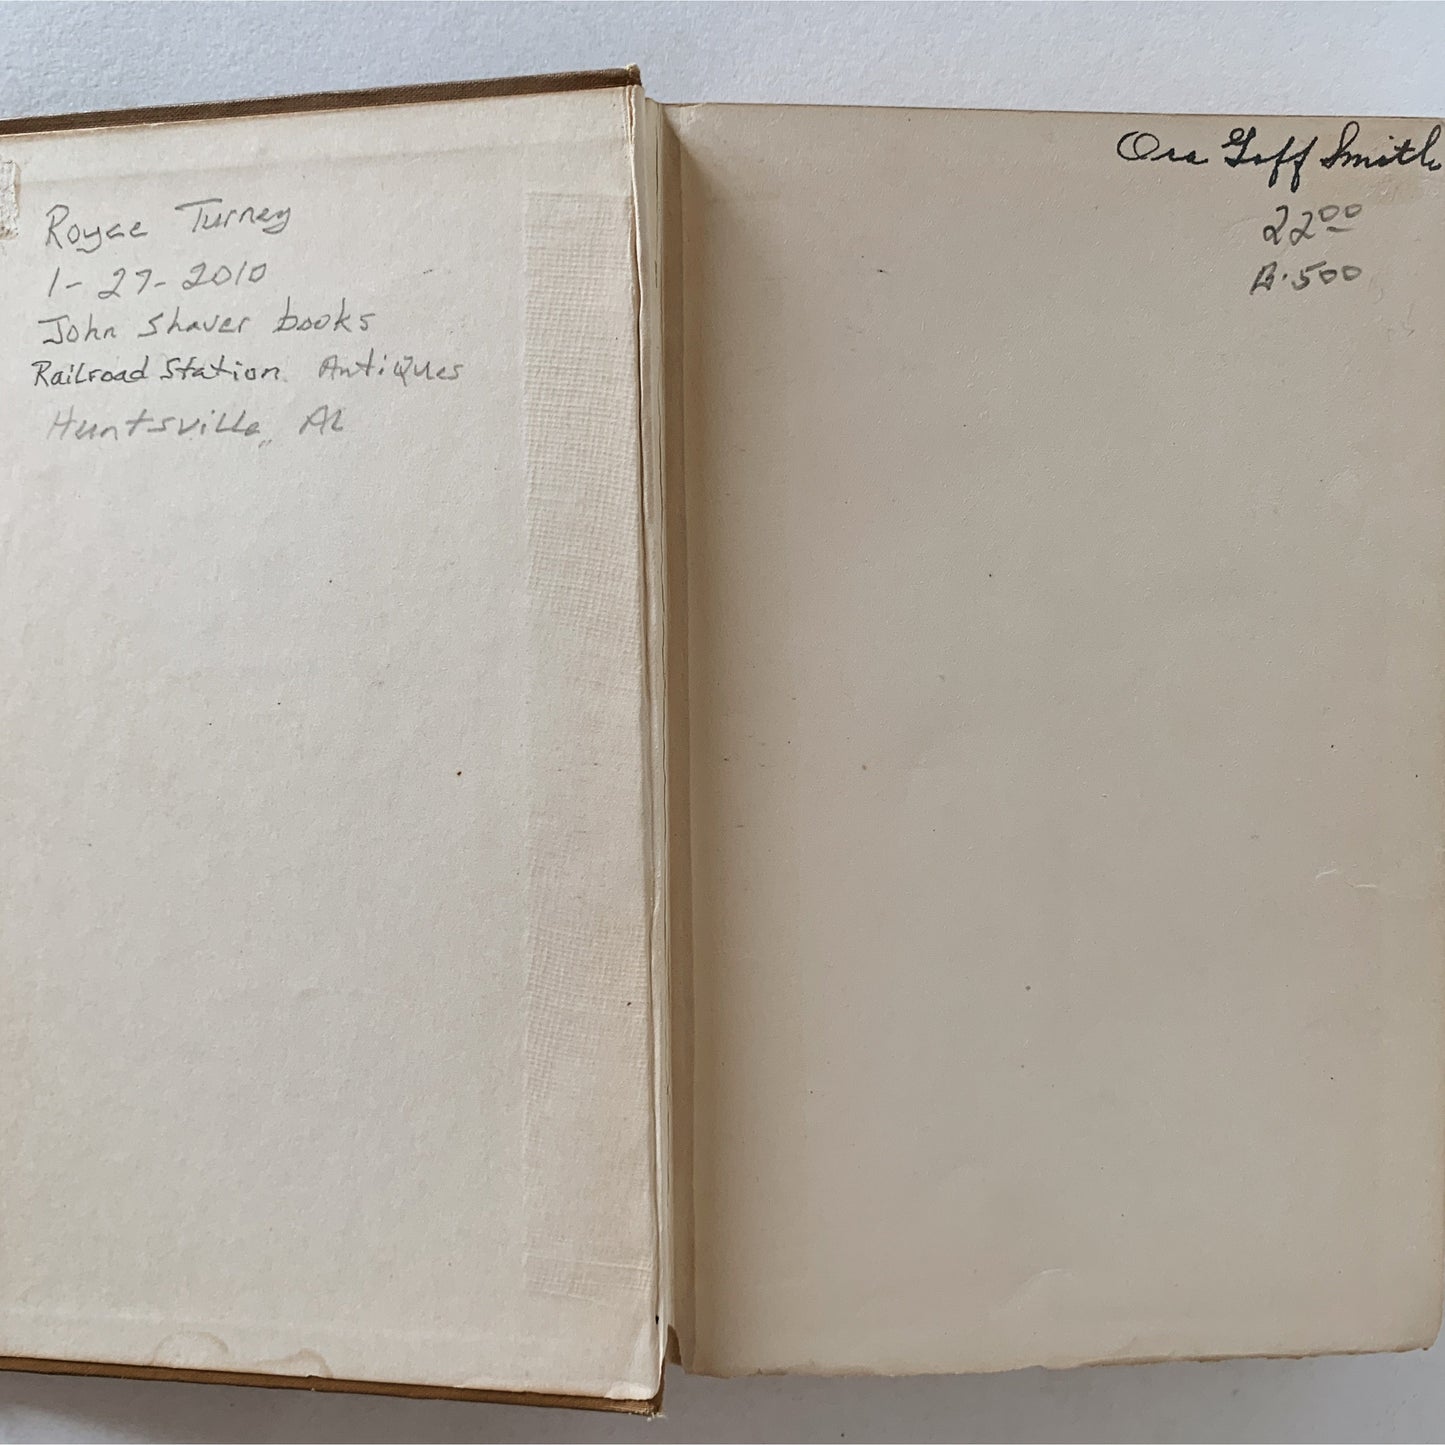 Royce Turney
1-27-2010
John Shaver books
Railroad Station Antiques
Huntsville, AL
Ora Goff Smith
22.00
B.500